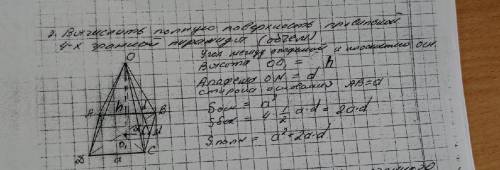 2. Вычислить полную поверхность правильной
4-х гранной пирамиды (объём)
Угол между апофемой и плоскостью осн.
Высота OO₁ = h
Апофема ON = d
Сторона основания AB=a
Sосн = a²
Sбок = 4·½ a·d = 2a·d
Sполн = a²+2a·d
O
A
B
h
d
O₁
D
a
C